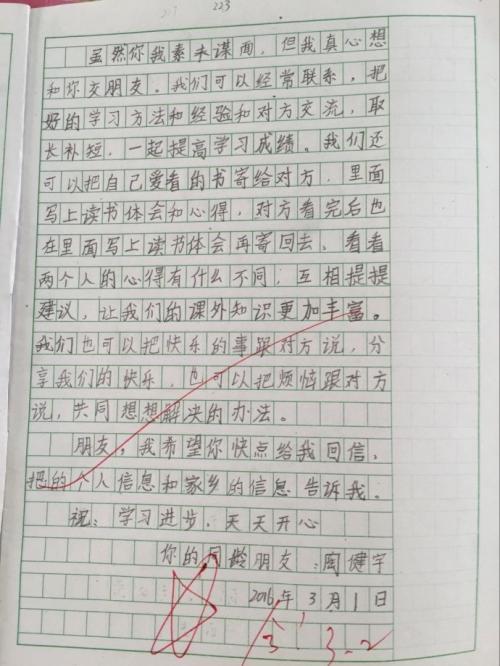 223
虽然你我素未谋面，但我真心想
和你交朋友。我们可以经常联系，把
好的学习方法和经验和对方交流，取
长补短，一起提高学习成绩。我们还
可以把自己爱看的书寄给对方，里面
写上读书体会和心得，对方看完后也
在里面写上读书体会再寄回去，看看
两个人的心得有什么不同，互相提提
建议，让我们的课外知识更加丰富。
我们也可以把快乐的事跟对方说，分
享我们的快乐，也可以把烦恼跟对方
说，共同想想解决的办法。
朋友，我希望你快点给我回信，
把的个人信息和家乡的信息告诉我。
祝：学习进步，天天开心
你的同龄朋友：陶健宇
2016年3月1日
3-2